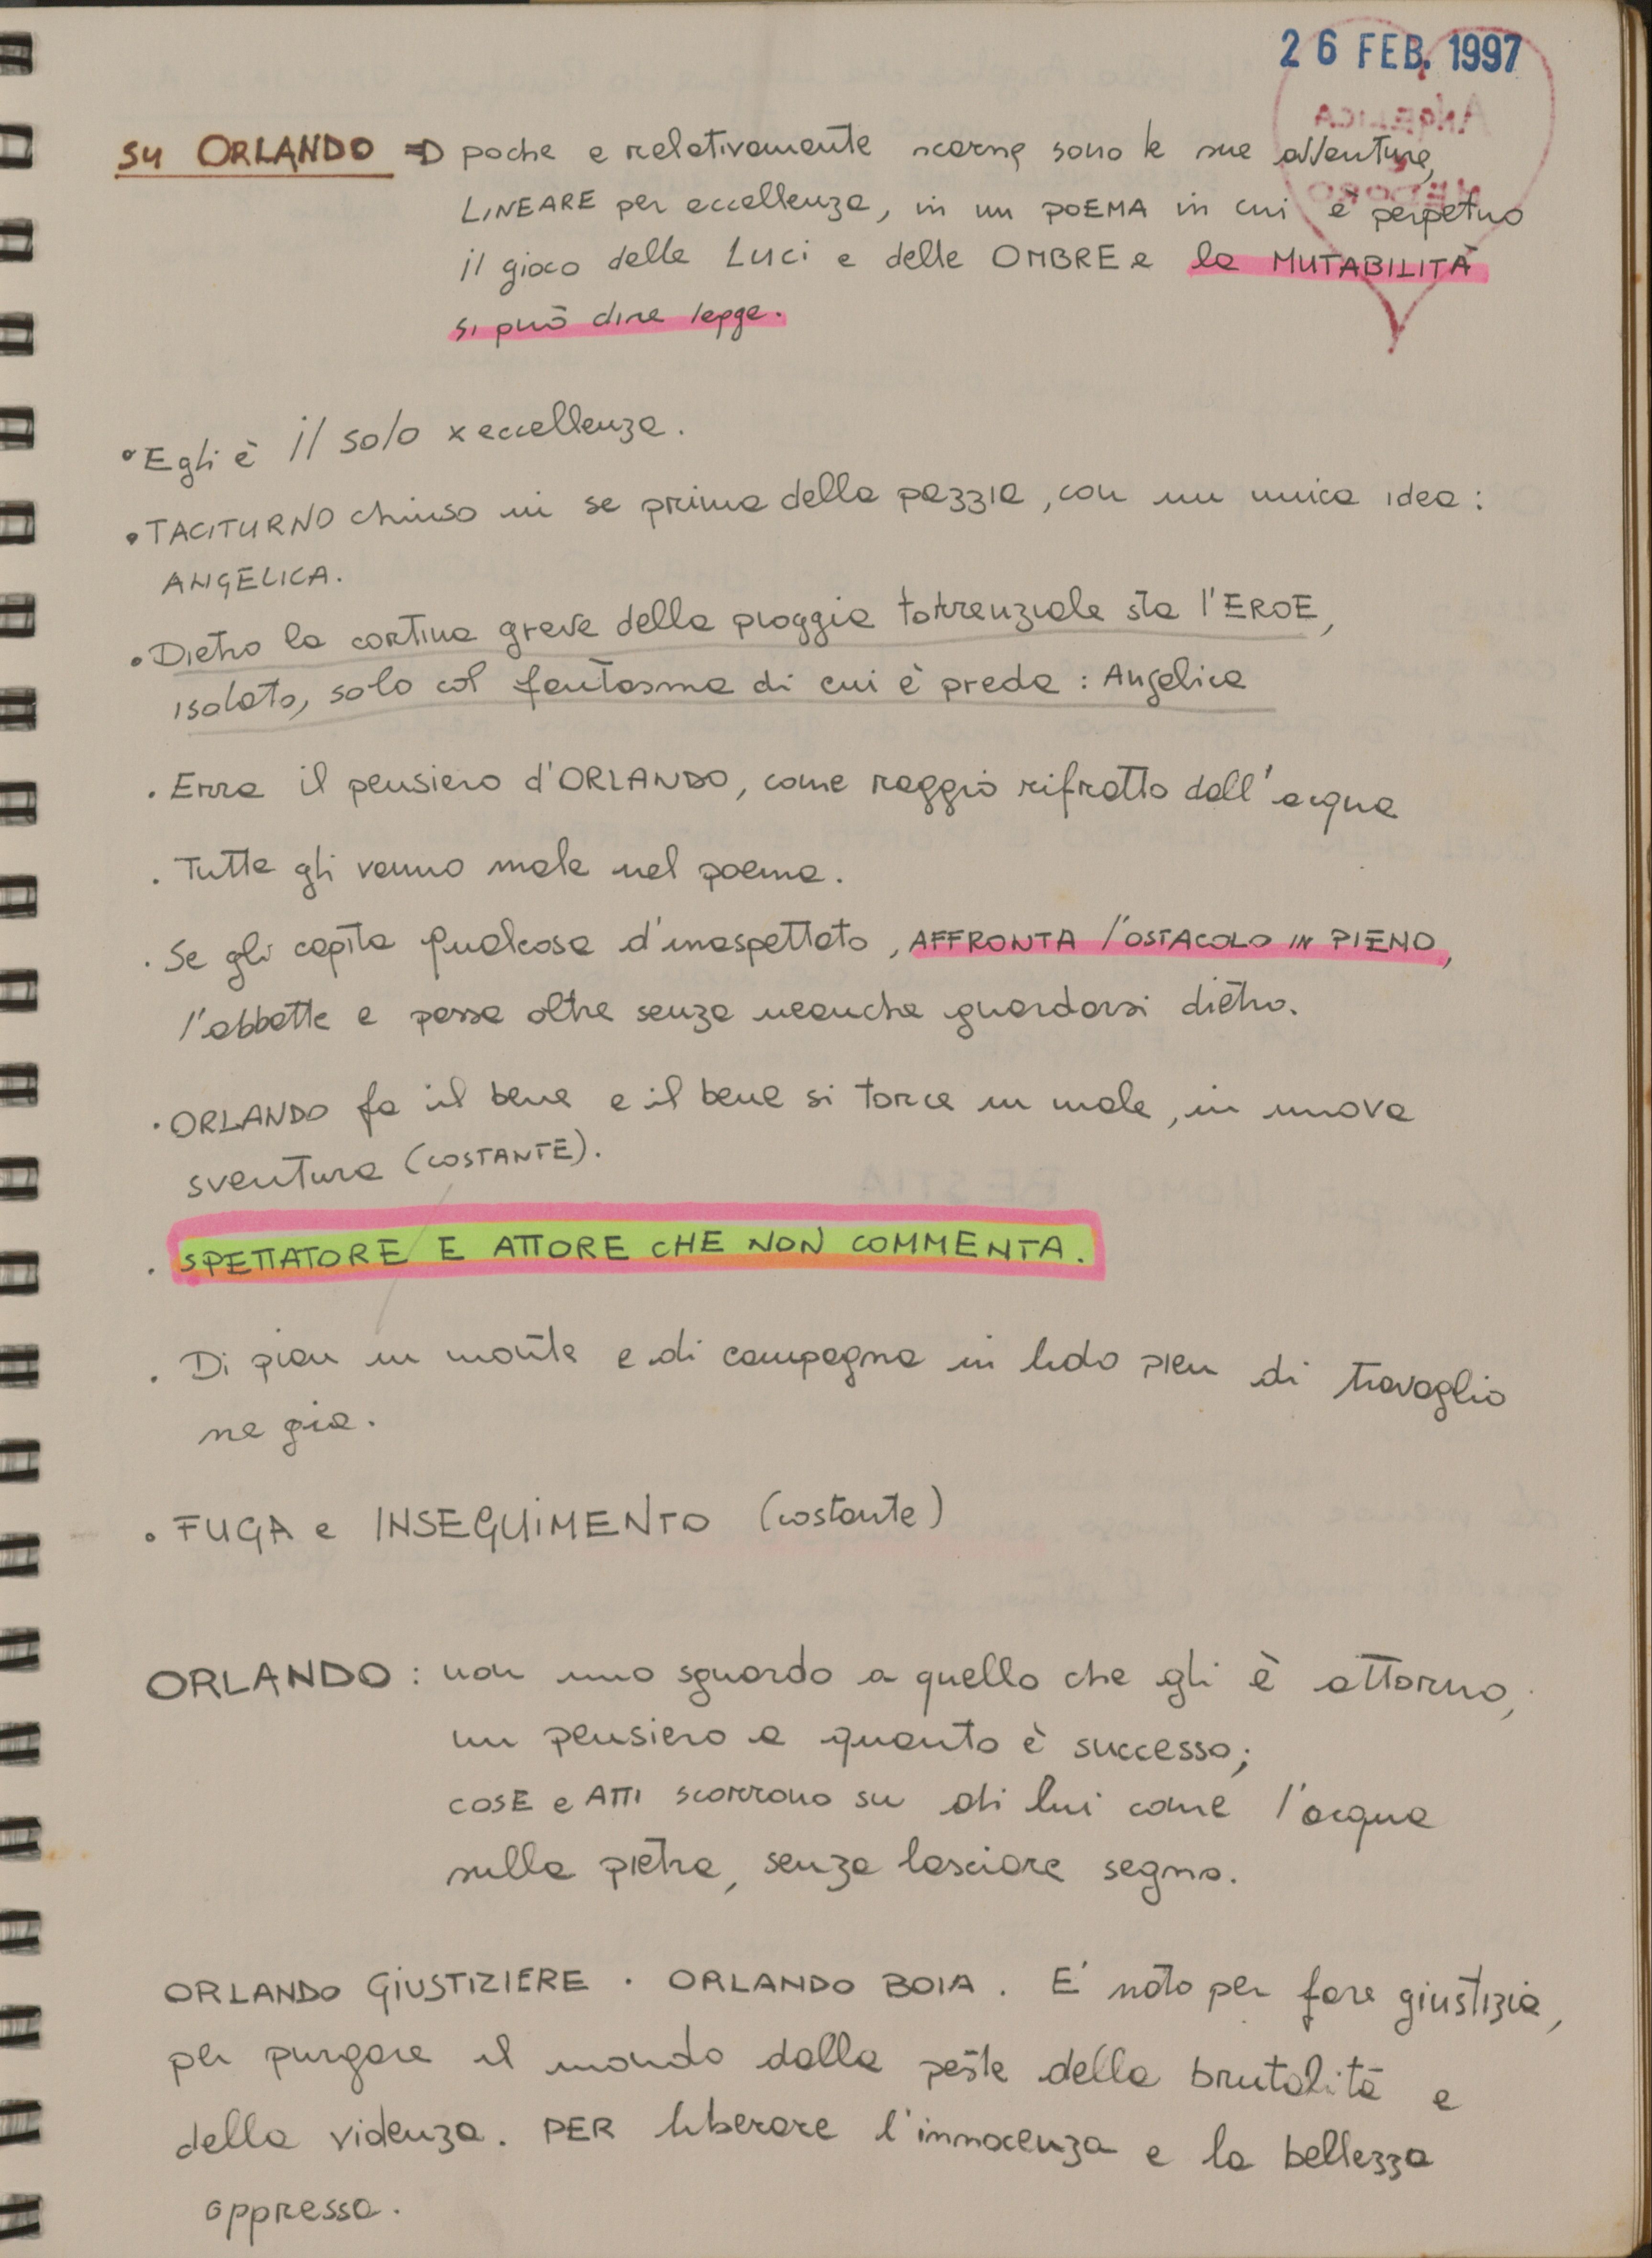 26 FEB. 1997
ANGELICA
MEDORO
SU ORLANDO => poche e relativamente scarne sono le sue avventure,
LINEARE per eccellenza, in un POEMA in cui è perpetuo
il gioco delle LUCI e delle OMBRE e la MUTABILITÀ
si può dire legge.
• Egli è il solo x eccellenza.
• TACITURNO chiuso in se prima della pazzia, con un unica idea:
ANGELICA.
• Dietro la cortina greve della pioggia torrenziale sta l'EROE,
isolato, solo col fantasma di cui è preda: Angelica
. Erra il pensiero d'ORLANDO, come raggio rifratto dall'acqua
. Tutte gli vanno male nel poema.
. Se gli capita qualcosa d'inaspettato, AFFRONTA l'OSTACOLO IN PIENO,
l'abbatte e passa oltre senza neanche guardarsi dietro.
. ORLANDO fa il bene e il bene si torce in male, in nuova
sventura (COSTANTE).
. SPETTATORE E ATTORE CHE NON COMMENTA.
. Di pian in monte e di campagna in lido pien di travaglio
ne gia.
• FUGA e INSEGUIMENTO (costante)
ORLANDO: non uno sguardo a quello che gli è attorno,
un pensiero a quanto è successo;
COSE e ATTI scorrono su di lui come l'acqua
sulla pietra, senza lasciare segno.
ORLANDO GIUSTIZIERE . ORLANDO BOIA . E' nato per fare giustizia,
per purgare il mondo dalla peste della brutalità e
della violenza. PER liberare l'innocenza e la bellezza
oppressa.